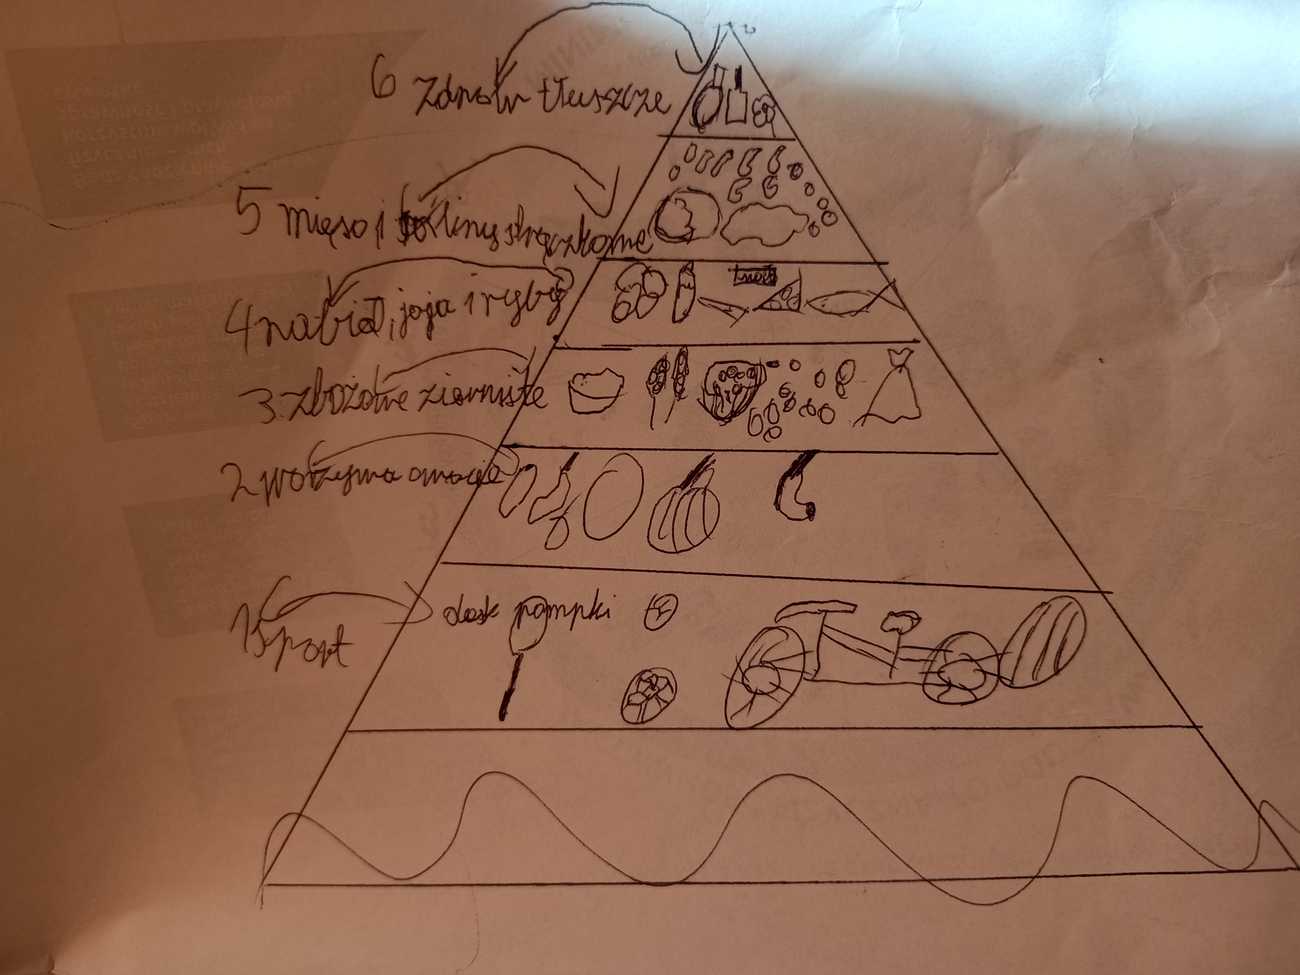 6 zdrow tłuszcze
5 mięso i rośliny strączkowe
4 nabiał, jaja i ryby
twaróg
3. zbożowe ziarniste
2 warzywa owoce
1 sport
desk pompki